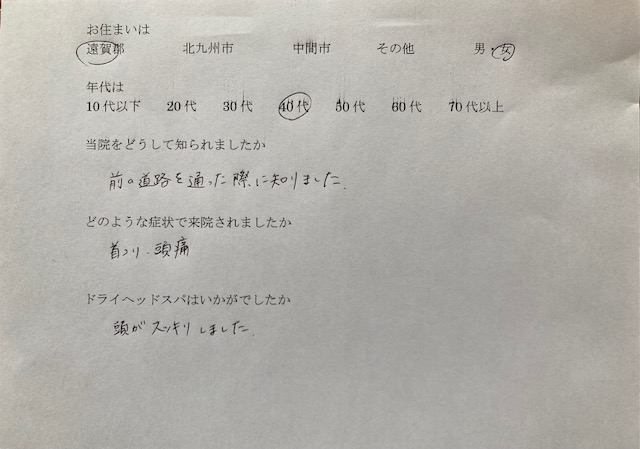 お住まいは
遠賀郡 北九州市 中間市 その他 男・女
年代は
10代以下 20代 30代 40代 50代 60代 70代以上
当院をどうして知られましたか
前の道路を通った際に知りました。
どのような症状で来院されましたか
首コリ・頭痛
ドライヘッドスパはいかがでしたか
頭がスッキリしました。